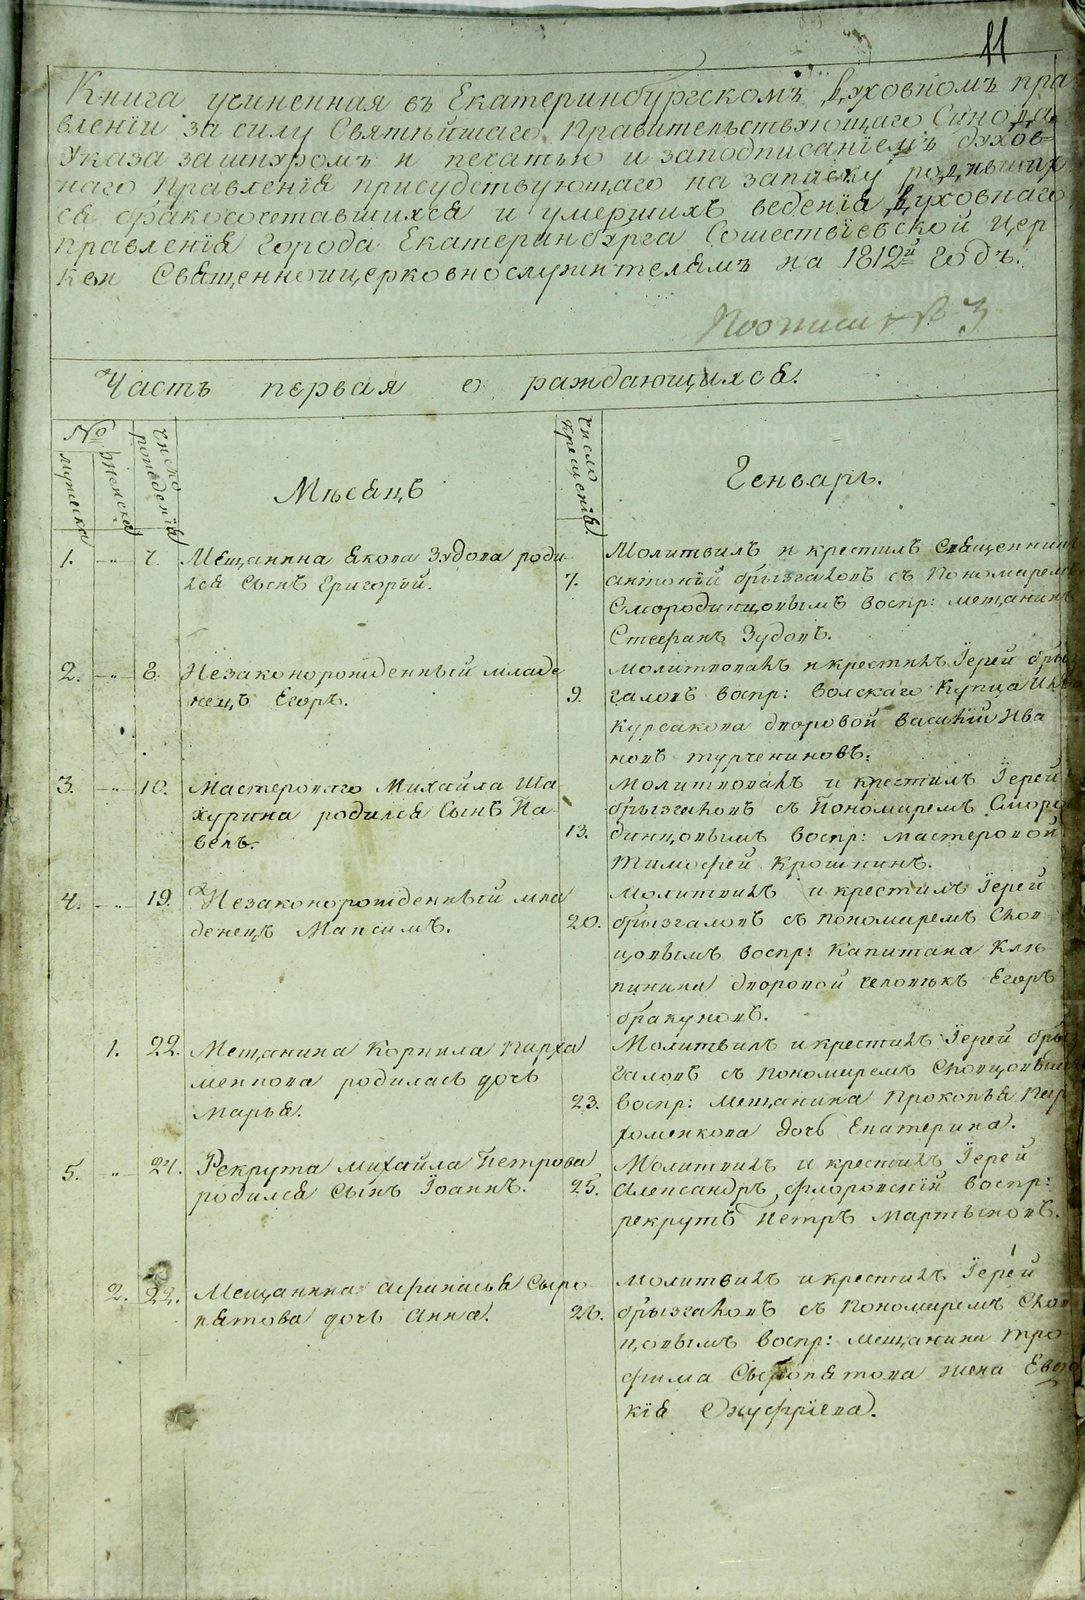 11
Книга учиненная въ Екатеринбургскомъ Духовномъ пра
вленіи за силу Святѣйшаго Правительствующаго Синода
Указа зашнуромъ и печатью и заподписаніемъ духов-
наго Правленія присудствующаго на записку родивших
ся бракосочетавшихся и умершихъ веденія Духовнаго
правленія Города Екатеринбурга Сошествіевской Цер
кви Священноицерковнослужителямъ на 1812й Годъ.
3
Часть первая о раждающихся.
№
мужеска
женска
число рожденія
Мѣсяцъ
число крещенія
Генварь.
1. " 7. Мещанина Якова Зудова роди
лся сынъ Григорій.
7.
Молитвилъ и крестилъ Священник
антоній брызгаловъ съ Пономаремъ
Смородинцовымъ воспр: мещанинъ
Стефанъ Зудовъ.
2. " 8. Незаконорожденный младе
нецъ Егоръ.
9.
Молитвовалъ и крестилъ Іерей бры
галовъ воспр: волскаго купца
Курсакова дворовой василій Ива
новъ турчениновъ:
3. " 10. Мастероваго Михайла Ша
хурина родился сынъ Па
велъ.
13.
Молитвовалъ и крестилъ Іерей
брызгаловъ съ Пономаремъ Сморо
динцовымъ воспр: мастеровой
Тимофей Крошнинъ.
4. " 19. Незаконорожденный мла
денецъ Максимъ.
20.
Молитвилъ и крестилъ Іерей
брызгаловъ съ пономаремъ Скоп
цовымъ воспр: Капитана Кля
пинина дворовой человѣкъ Егоръ
бракуновъ.
1. 22. Мещанина Корнила Парха
менкова родилась дочь
Марья.
23.
Молитвилъ и крестилъ Іерей бры
галовъ съ пономаремъ Скопцовым
воспр: Мещанина Прокопья Пар
хоменкова дочь Екатерина.
5. " 24. Рекрута михайла Петрова
родился Сынъ Іоаннъ.
25.
Молитвилъ и крестилъ Іерей
Александръ флоровскій воспр:
рекрутъ Петръ Мартыновъ.
2. 22. Мещанина Афанасья Сыро
пятова дочь Анна.
26.
Молитвилъ и крестилъ Іерей
брызгаловъ съ пономаремъ Скоп
цовымъ воспр: мещанина тро
фима Сыропятова жена Евдо
кія Онуфріева.
METRIKI.GASO-URAL.RU